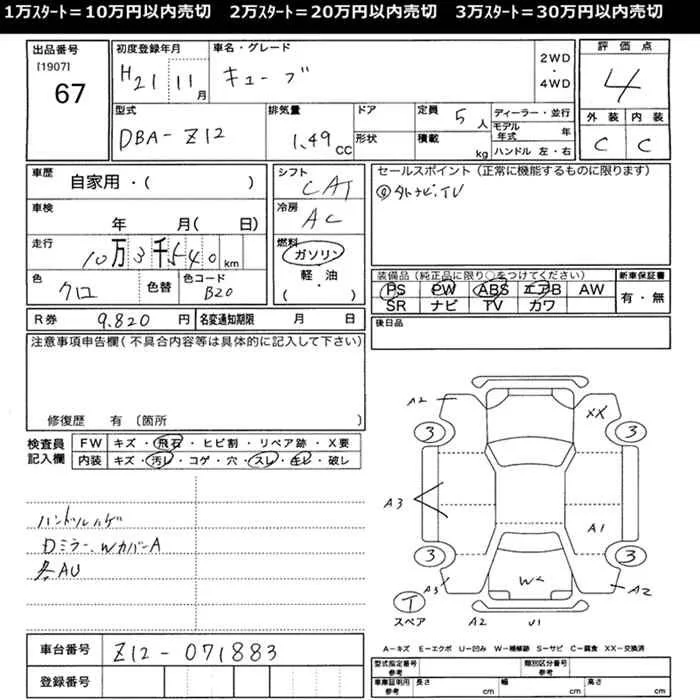 1万ｽﾀｰﾄ＝10万円以内売切　2万ｽﾀｰﾄ＝20万円以内売切　3万ｽﾀｰﾄ＝30万円以内売切
出品番号
[1907]
67
初度登録年月
H21 11月
車名・グレード
キューブ
2WD
・
4WD
評価点
4
外装 内装
C C
型式
DBA-Z12
排気量
1.49 CC
ドア
形状
定員 5人
積載 kg
ディーラー・並行
モデル年式 年
ハンドル 左・右
車歴
自家用・( )
車検
年 月( 日)
走行
10万3千540 km
色
クロ
色替
色コード
B20
シフト
CAT
冷房
AC
燃料
ガソリン
軽・油
( ・ )
セールスポイント（正常に機能するものに限ります）
ナビ、TV
装備品（純正品に限り○をつけてください）
PS PW ABS エアB AW
SR ナビ TV カワ
新車保証書
有・無
R券 9.820 円
名変通知期限 月 日
後日品
注意事項申告欄（不具合内容等は具体的に記入して下さい）
修復歴 有〔箇所 〕
検査員
記入欄
FW キズ・飛石・ヒビ割・リペア跡・X要
内装 キズ・汚レ・コゲ・穴・スレ・キレ・破レ
ハンドルハゲ
DミラーWカバーA
各AU
A2
XX
3
3
A3
A1
3
3
W
A3
A2
T
スペア
A2
U1
車台番号
Z12-071883
登録番号
A－キズ E－エクボ U－凹み W－補修跡 S－サビ C－腐食 XX－交換済
型式指定番号
参考
類別区分番号
参考
車庫証明用
参考
長さ cm
幅 cm
高さ cm